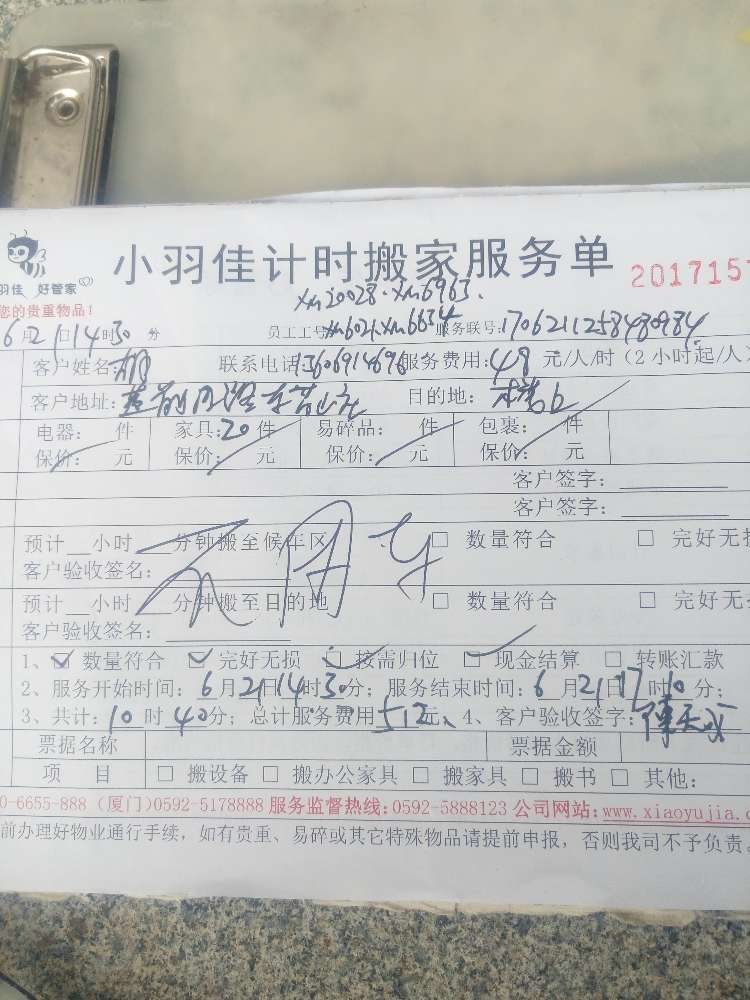 小羽佳计时搬家服务单
羽佳 好管家
2017157
您的贵重物品!
xm20028.xm6963.
6月21日14时30分 员工工号:xm6021.xm6634 服务联号:1706211258480984
客户姓名:胡 联系电话:13606914696 服务费用:48 元/人/时(2小时起/人
客户地址: 目的地:
电器: 件 家具:20件 易碎品: 件 包裹: 件
保价: 元 保价: 元 保价: 元 保价: 元
客户签字:
客户签字:
预计__小时__分钟搬至候车区 □ 数量符合 □ 完好无损
客户验收签名:
不用车
预计__小时__分钟搬至目的地 □ 数量符合 □ 完好无
客户验收签名:
1、☑ 数量符合 ☑ 完好无损 ☑ 按需归位 ☑ 现金结算 □ 转账汇款
2、服务开始时间:6月21日14时30分;服务结束时间:6月21日17时10分;
3、共计:10时40分;总计服务费用512元、4、客户验收签字:
票据名称 票据金额
项 目 □ 搬设备 □ 搬办公家具 □ 搬家具 □ 搬书 □ 其他:
0-6655-888 (厦门)0592-5178888 服务监督热线:0592-5888123 公司网站:www.xiaoyujia.c
前办理好物业通行手续,如有贵重、易碎或其它特殊物品请提前申报,否则我司不予负责。